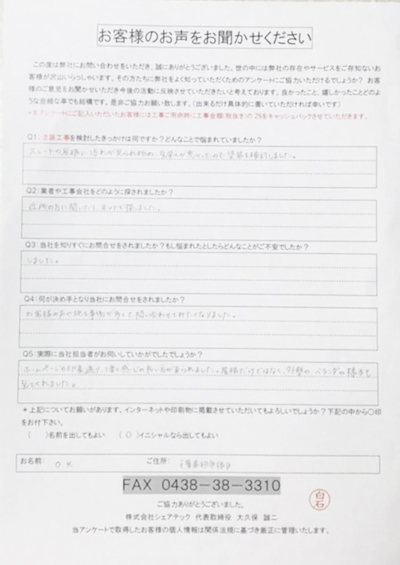 お客様のお声をお聞かせください
この度は弊社にお問い合わせをいただき、誠にありがとうございました。世の中には弊社の存在やサービスをご存知ないお
客様が沢山いらっしゃいます。その方たちに弊社をよく知っていただくためのアンケートにご協力いただけるでしょうか? お客
様のご意見をお聞かせいただき今後の活動に反映させていただきたいと考えております。良かったこと、嬉しかったことどのよ
うな些細な事でも結構です。是非ご協力お願い致します。(出来るだけ具体的に書いていただければ幸いです)
*本アンケートにご記入いただいたお客様には工事ご用命時に工事金額(税抜き)の2%をキャッシュバックさせていただきます。
Q1:塗装工事を検討したきっかけは何ですか?どんなことで悩まれていましたか?
Q2:業者や工事会社をどのように探されましたか?
Q3:当社を知りすぐにお問合せをされましたか?もし悩まれたとしたらどんなことがご不安でしたか?
しました。
Q4:何が決め手となり当社にお問合せをされましたか?
お客様の声や施工事例が多くて問い合わせてみたくなりました。
Q5:実際に当社担当者がお伺いしていかがでしたでしょうか?
*上記についてお願いがあります。インターネットや印刷物に掲載させていただいてもよろしいでしょうか?下記の中から〇印
をお付下さい。
( )名前を出してもよい ( 〇 )イニシャルなら出してもよい
お名前: O.K ご住所:
FAX 0438-38-3310
ご協力ありがとうございました。
白石
株式会社シェアテック 代表取締役 大久保 誠二
当アンケートで取得したお客様の個人情報は関係法規に基づき厳正に管理いたします。